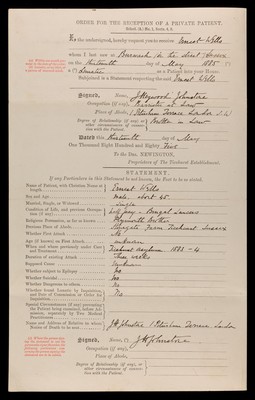 ORDER FOR THE RECEPTION OF A PRIVATE PATIENT.
I, the undersigned, hereby request you to receive Ernest Wells
whom I last saw at in the street Sussex
on the thirteenth day of May 1885
a Lunatic as a Patient into your House.
Subjoined is a Statement respecting the said Ernest Wells
Signed, Name, J Heywood Johnstone
Occupation (if any), Barrister at Law
Place of Abode, 1 Petersham Terrace London S.W.
Degree of Relationship (if any) or other circumstance of connection with the Patient. Brother in Law
Dated this thirteenth day of May
One Thousand Eight Hundred and Eighty Five
To the Drs. NEWINGTON,
Proprietors of The Ticehurst Establishment.
STATEMENT.
If any Particulars in this Statement be not known, the Fact to be so stated.
Name of Patient, with Christian Name at length Ernest Wells
Sex and Age male, about 45
Married, Single, or Widowed Single
Condition of Life, and previous Occupation (if any) Bengal Lancers
Religious Persuasion, as far as known Plymouth Brother
Previous Place of Abode Farm Ticehurst Sussex
Whether First Attack No
Age (if known) on First Attack unknown
When and where previously under Care and Treatment Ticehurst Asylum 1883-4
Duration of existing Attack three weeks
Supposed Cause Unknown
Whether subject to Epilepsy No
Whether Suicidal No
Whether Dangerous to others No
Whether found Lunatic by Inquisition, and Date of Commission or Order for Inquisition No
Special Circumstances (if any) preventing the Patient being examined, before Admission, separately by Two Medical Practitioners
Name and Address of Relative to whom Notice of Death to be sent J H Johnstone 1 Petersham Terrace London
Signed, Name, J H Johnstone
Occupation (if any),
Place of Abode,
Degree of Relationship (if any), or other circumstance of connection with the Patient.